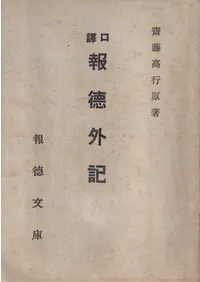 齋藤高行原著
口譯
報德外記
報德文庫